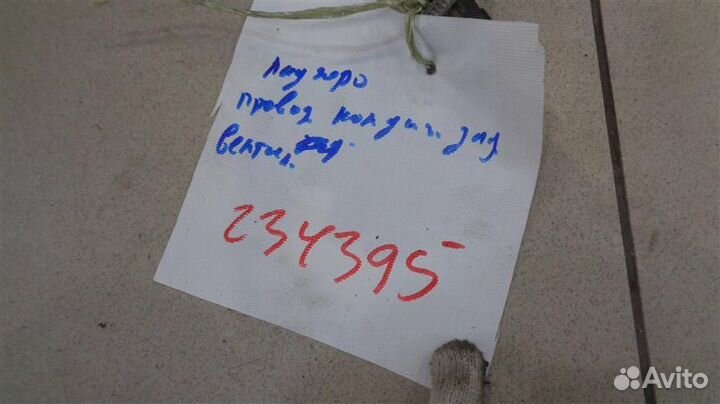 паджеро
провод кондиц. зад
вентил.
234395
Avito